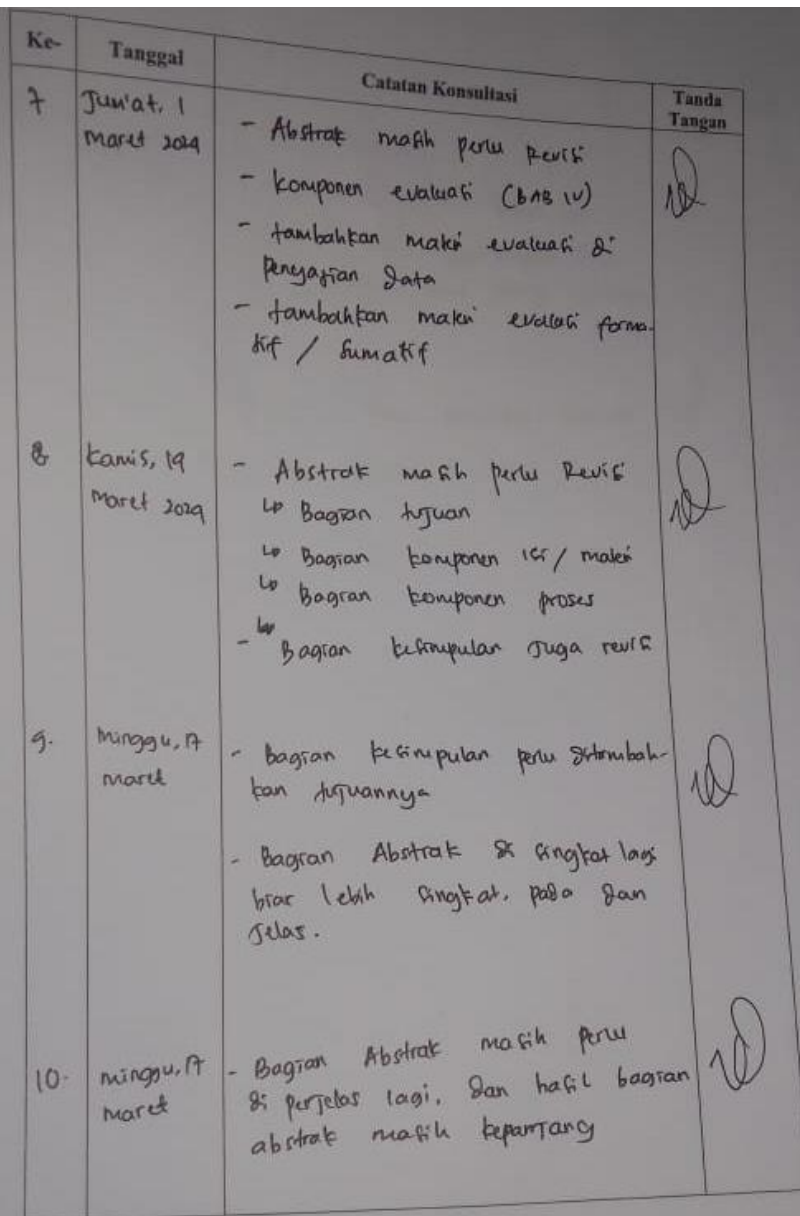 Ke-
Tanggal
Catatan Konsultasi
Tanda
Tangan
7
Jum'at, 1
Maret 2024
- Abstrak masih perlu Revisi
- komponen evaluasi (BAB IV)
- tambahkan makri evaluasi di
Penyajian data
- tambahkan makri evaluasi forma-
tif / Sumatif
8
Kamis, 14
Maret 2024
- Abstrak masih perlu Revisi
↳ Bagian tujuan
↳ Bagian komponen isi / materi
↳ Bagian komponen proses
- ↳ Bagian kesimpulan Juga revisi
9.
Minggu, 17
Maret
- Bagian kesimpulan perlu ditambah-
kan tujuannya
- Bagian Abstrak di singkat lagi
biar lebih singkat, pada dan
Jelas.
10.
Minggu, 17
Maret
- Bagian Abstrak masih perlu
di perjelas lagi, dan hasil bagian
abstrak masih kepanjang